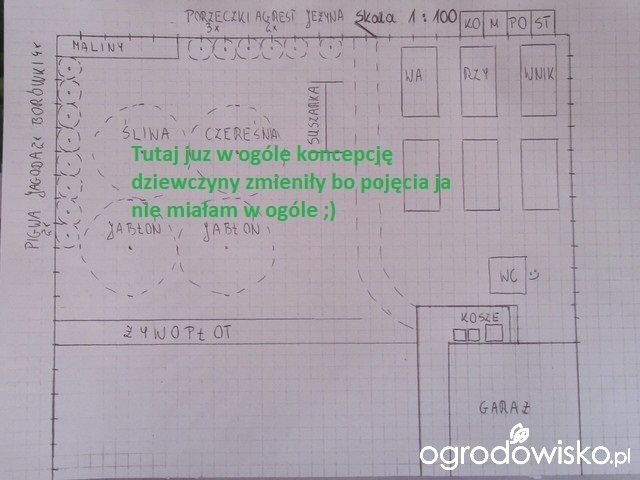 PORZECZKI AGREST JEŻYNA
3x 2x
Skala 1:100
KO M PO ST
MALINY
WA RZY WNIK
SUSZARKA
PIGWA 2x JAGODA 2x BORÓWKI 4x
ŚLIWA CZEREŚNA
Tutaj juz w ogóle koncepcję
dziewczyny zmieniły bo pojęcia ja
nie miałam w ogóle ;)
JABŁOŃ JABŁOŃ
WC
KOSZE
ŻYWOPŁOT
GARAŻ
ogrodowisko.pl